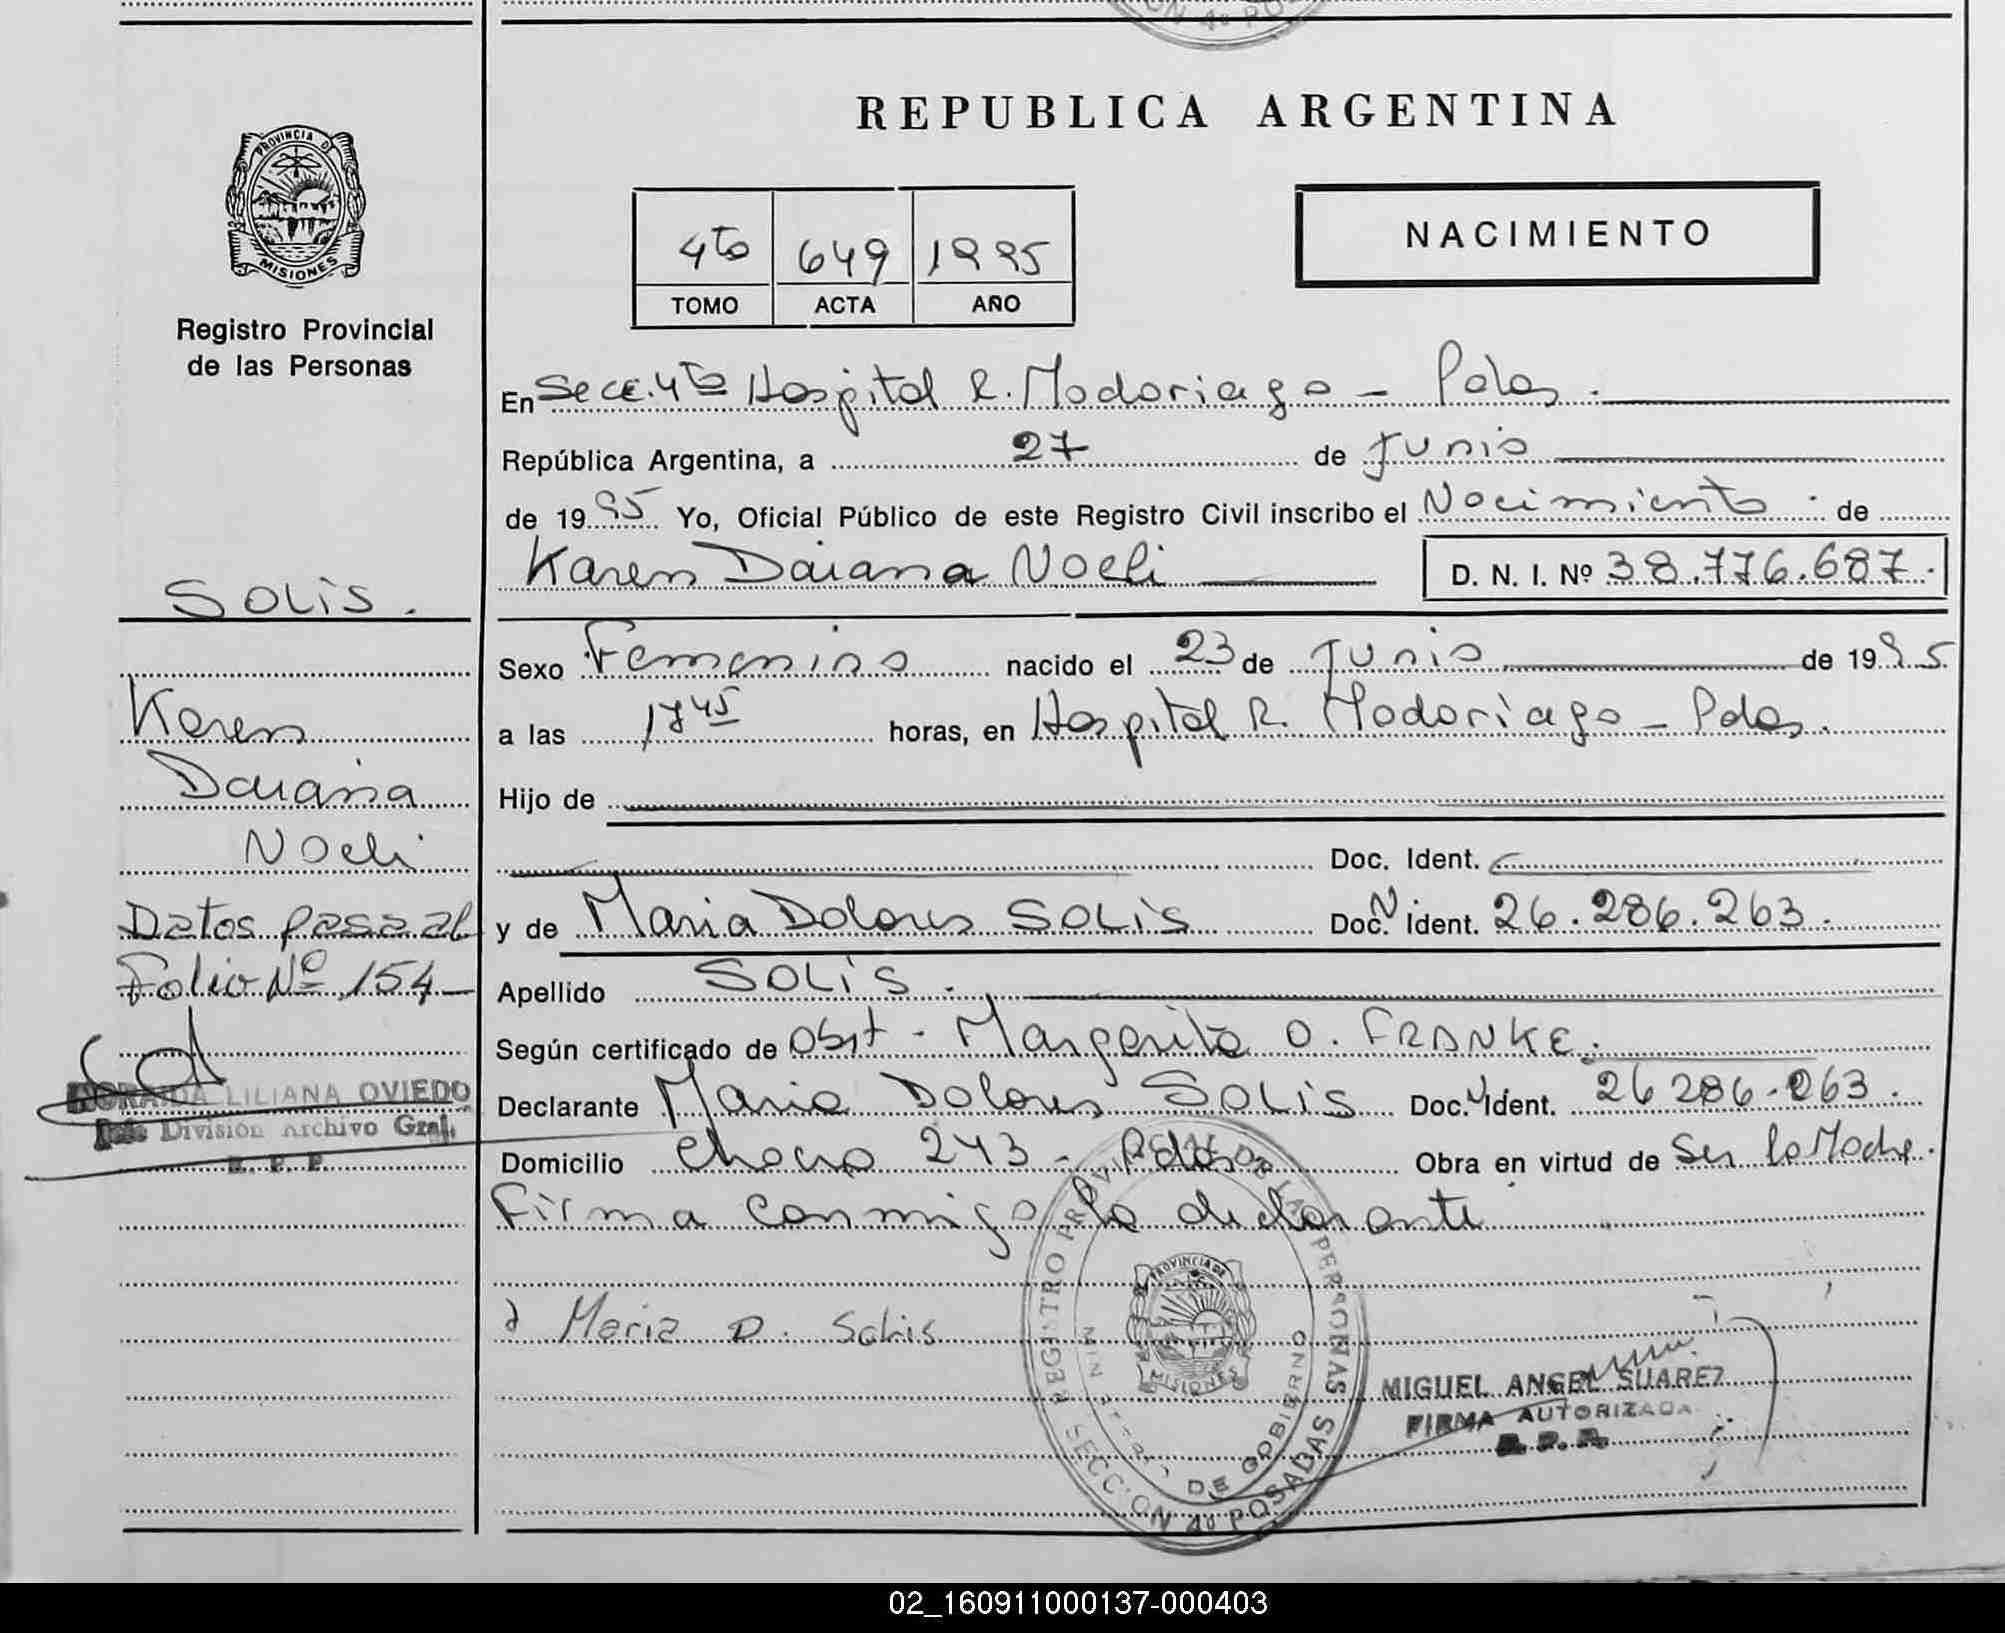 REPUBLICA ARGENTINA
PROVINCIA D
MISIONES
Registro Provincial
de las Personas
4to 649 1995
TOMO ACTA AÑO
NACIMIENTO
En Secc. 4ta Hospital R. Madariaga - Pdas.
República Argentina, a 27 de Junio
de 1995 Yo, Oficial Público de este Registro Civil inscribo el Nacimiento de
Karen Daiana Noeli D. N. I. Nº 38.776.687.
SOLIS.
Sexo Femenino nacido el 23 de Junio de 1995
Karen
a las 17 45 horas, en Hospital R. Madariaga - Pdas.
Daiana
Hijo de
Noeli
Doc. Ident.
Datos pasa al
y de Maria Dolores SOLIS Doc. N Ident. 26.286.263.
Folio Nº 154
Apellido SOLIS.
Según certificado de Obst - Margarita O. FRANKE.
LILIANA OVIEDO
Declarante Maria Dolores SOLIS Doc. N Ident. 26 286.263.
Jefe División Archivo Gral.
R. P. P.
Domicilio Chaco 243 - Pdas Obra en virtud de Ser la Madre.
Firma conmigo la declarante
Maria D. Solis
REGISTRO PROVINCIAL DE LAS PERSONAS
PROVINCIA DE
MISIONES
DE GOBIERNO
SECCION 4º POSADAS
MIGUEL ANGEL SUAREZ
FIRMA AUTORIZADA
R. P. P.
02_160911000137-000403